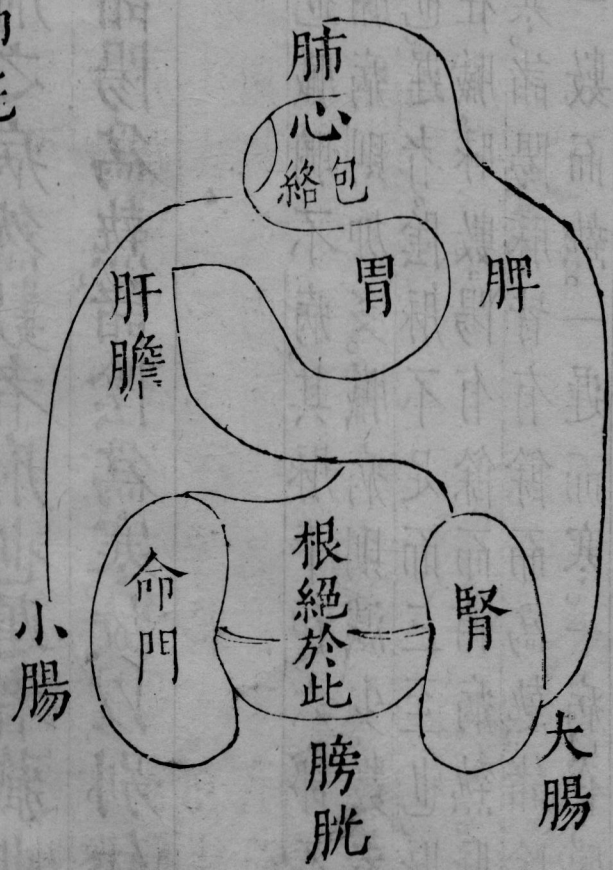 肺
心
包絡
胃
脾
肝膽
根絕於此
命門
腎
小腸
大腸
膀胱